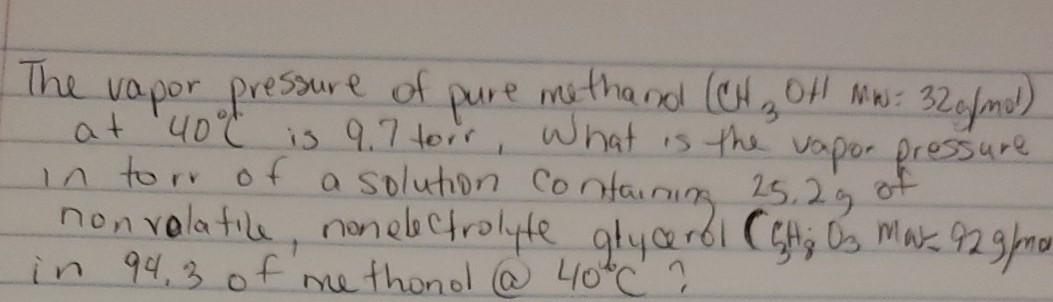 The vapor pressure of pure methanol (CH3OH MW: 32g/mol)
at 40°C is 9.7 torr, What is the vapor pressure
in torr of a solution containing 25.2g of
nonvolatile, nonelectrolyte glycerol (C3H8O3 MW= 92g/mo
in 94.3 of methonol @ 40°C ?